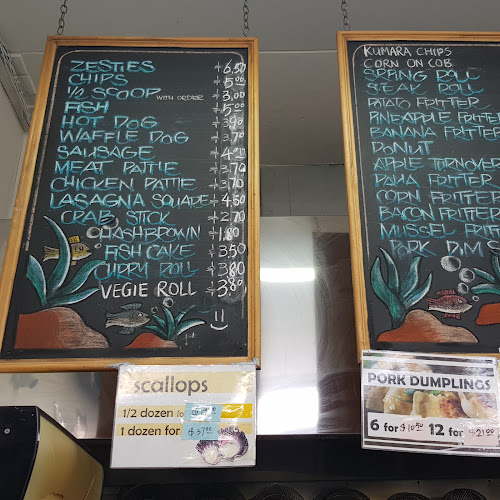 ZESTIES $6.50
CHIPS $5.00
1/2 SCOOP WITH ORDER $3.00
FISH $5.00
HOT DOG $3.90
WAFFLE DOG $3.70
SAUSAGE
MEAT PATTIE $3.70
CHICKEN PATTIE $3.70
LASAGNA SQUARE $4.60
CRAB STICK $2.70
HASHBROWN $1.80
FISH CAKE $3.50
CURRY ROLL $3.80
VEGIE ROLL
KUMARA CHIPS
CORN ON COB
SPRING ROLL
STEAK ROLL
POTATO FRITTER
PINEAPPLE FRITTER
BANANA FRITTER
DONUT
APPLE TURNOVER
PAUA FRITTER
CORN FRITTER
BACON FRITTER
MUSSEL FRITTER
PORK DIM S
scallops
1/2 dozen for
1 dozen for $37.00
PORK DUMPLINGS
6 for $10.50 12 for $21.00